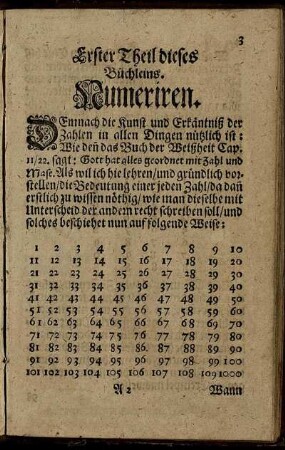 3
Erster Theil dieses
Büchleins.
Numeriren.
DEmnach die Kunst und Erkäntniß der
Zahlen in allen Dingen nützlich ist:
Wie deñ das Buch der Weißheit Cap.
11/22. sagt: Gott hat alles geordnet mit Zahl und
Maß. Als wil ich hie lehren/und gründlich vor-
stellen/die Bedeutung einer jeden Zahl/da dañ
erstlich zu wissen nöthig/wie man dieselbe mit
Unterscheid der andern recht schreiben soll/und
solches beschiehet nun auf folgende Weise:
1 2 3 4 5 6 7 8 9 10
11 12 13 14 15 16 17 18 19 20
21 22 23 24 25 26 27 28 29 30
31 32 33 34 35 36 37 38 39 40
41 42 43 44 45 46 47 48 49 50
51 52 53 54 55 56 57 58 59 60
61 62 63 64 65 66 67 68 69 70
71 72 73 74 75 76 77 78 79 80
81 82 83 84 85 86 87 88 89 90
91 92 93 94 95 96 97 98 99 100
101 102 103 104 105 106 107 108 109 1000
A 2 Wann